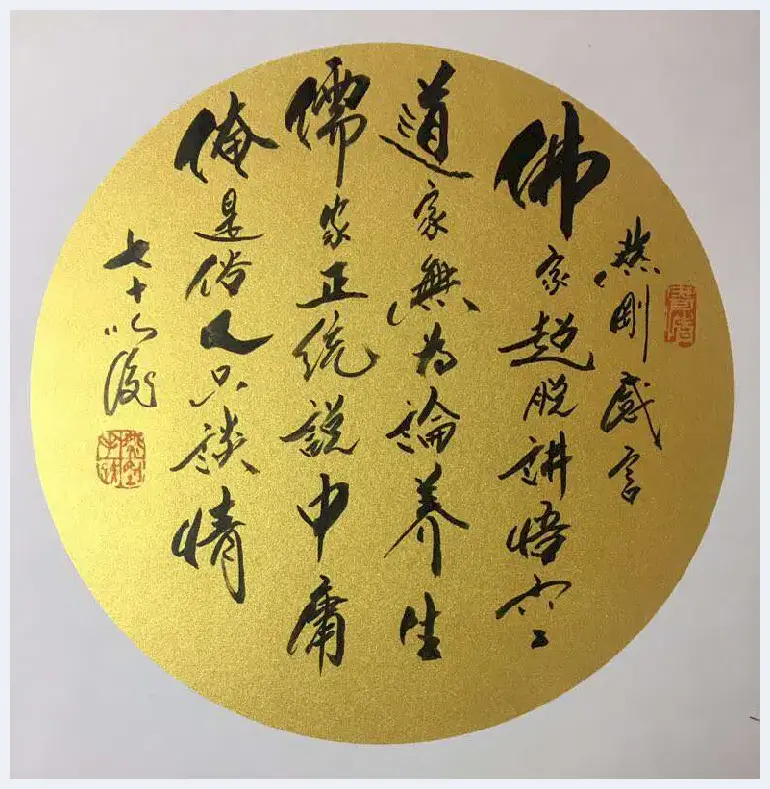 燕剛感言
佛家超脱講悟空
道家無為論養生
儒家正统説中庸
俺是俗人只談情
七十以後